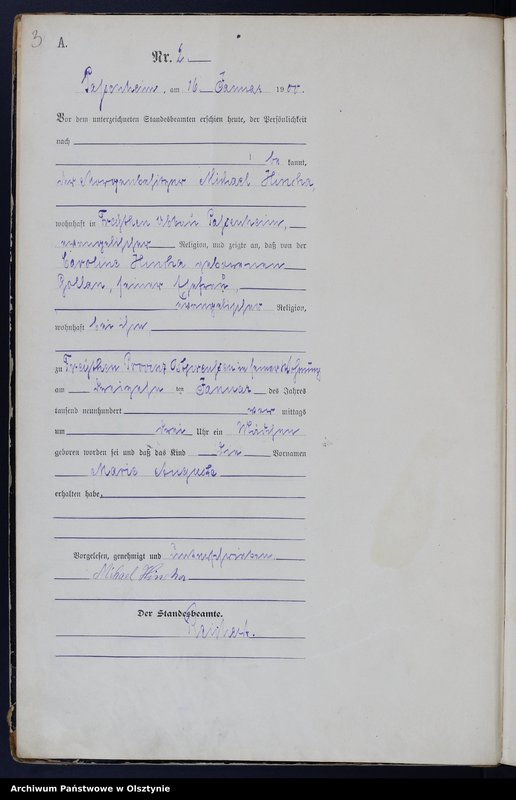 3
A.
Nr. 2
Pappenheim, am 16 Januar 1900.
Vor dem unterzeichneten Standesbeamten erschien heute, der Persönlichkeit
nach
be kannt,
der Michael Hinska,
wohnhaft in Pappenheim,
evangelischer Religion, und zeigte an, daß von der
Caroline Hinska geborenen
Zollan, seiner Ehefrau,
evangelischer Religion,
wohnhaft bei ihm,
zu Provinz Ostpreußen in seiner Wohnung
am dreizehn ten Januar des Jahres
tausend neunhundert vor mittags
um drei Uhr ein Mädchen
geboren worden sei und daß das Kind die Vornamen
Marie Auguste
erhalten habe.
Vorgelesen, genehmigt und unterschrieben.
Michael Hinska
Der Standesbeamte.
Archiwum Państwowe w Olsztynie